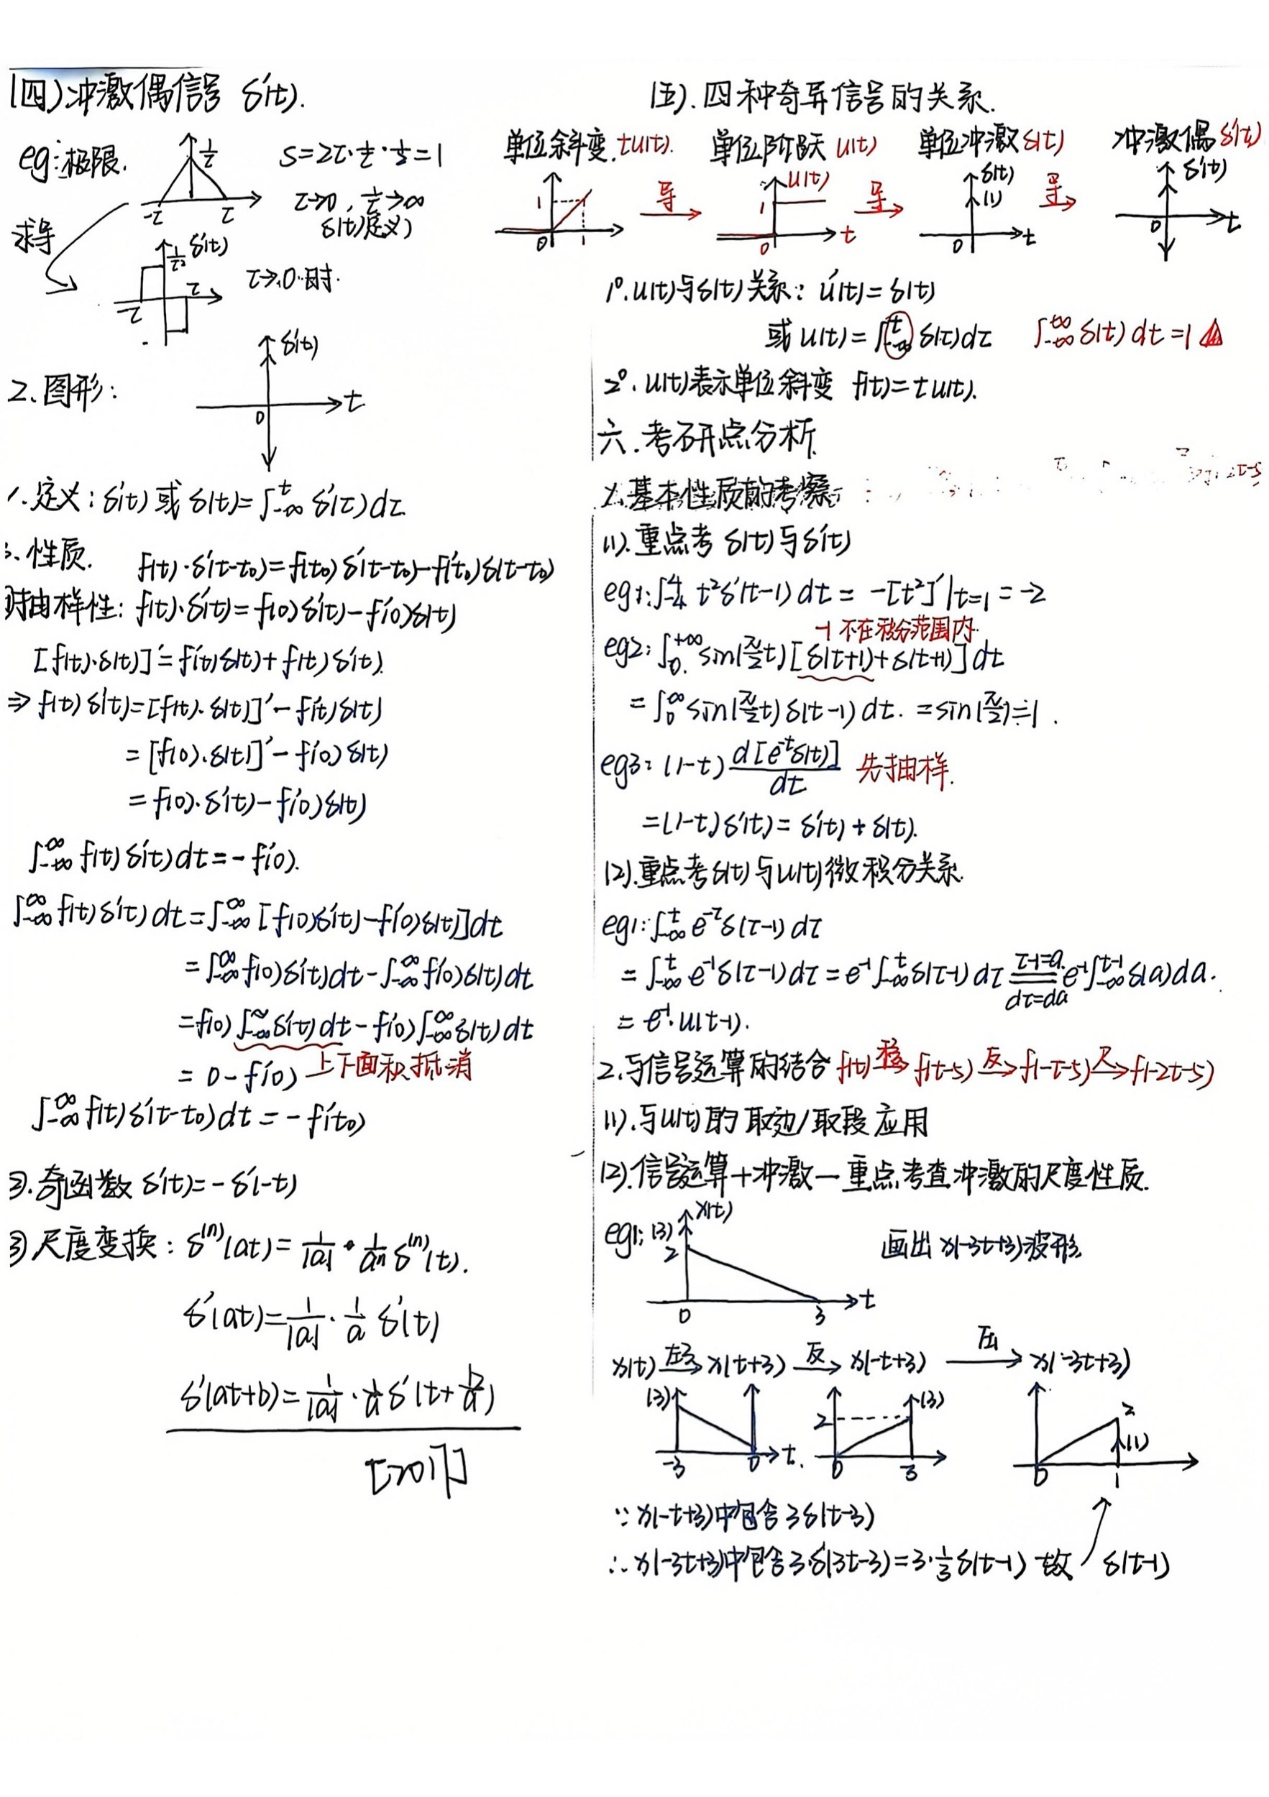 (四)冲激偶信号 δ'(t).
eg:极限. 1/τ S=2τ·1/τ·1/2=1
-τ τ τ→0, 1/τ→∞
δ(t)定义)
求导 1/τ² δ'(t)
-τ τ τ→0时.
2.图形: δ'(t)
0 t
1.定义:δ'(t)或δ(t)=∫_{-∞}^{t}δ'(τ)dτ
3.性质. f(t)·δ'(t-t₀)=f(t₀)δ'(t-t₀)-f'(t₀)δ(t-t₀)
①抽样性:f(t)·δ'(t)=f(0)δ'(t)-f'(0)δ(t)
[f(t)·δ(t)]'=f'(t)δ(t)+f(t)δ'(t)
⇒f(t)δ'(t)=[f(t)·δ(t)]'-f'(t)δ(t)
=[f(0)·δ(t)]'-f'(0)δ(t)
=f(0)·δ'(t)-f'(0)δ(t)
∫_{-∞}^{∞}f(t)δ'(t)dt=-f'(0).
∫_{-∞}^{∞}f(t)δ'(t)dt=∫_{-∞}^{∞}[f(0)δ'(t)-f'(0)δ(t)]dt
=∫_{-∞}^{∞}f(0)δ'(t)dt-∫_{-∞}^{∞}f'(0)δ(t)dt
=f(0)∫_{-∞}^{∞}δ'(t)dt-f'(0)∫_{-∞}^{∞}δ(t)dt
=0-f'(0) 上下面积抵消
∫_{-∞}^{∞}f(t)δ'(t-t₀)dt=-f'(t₀)
②.奇函数 δ'(t)=-δ'(-t)
③尺度变换:δ⁽ⁿ⁾(at)=1/|a|·1/aⁿ δ⁽ⁿ⁾(t).
δ'(at)=1/|a|·1/a δ'(t)
δ'(at+b)=1/|a|·1/a δ'(t+b/a)
(五).四种奇异信号的关系.
单位斜变.tu(t). 单位阶跃 u(t) 单位冲激δ(t) 冲激偶δ'(t)
1 0 1 导 u(t) 1 0 t 导 δ(t) (1) 0 t 导 δ'(t) 0 t
1°.u(t)与δ(t)关系:u'(t)=δ(t)
或u(t)=∫_{-∞}^{t}δ(τ)dτ ∫_{-∞}^{+∞}δ(t)dt=1
2°.u(t)表示单位斜变 f(t)=tu(t).
六.考研点分析
1.基本性质的考察
(1).重点考δ(t)与δ'(t)
eg1:∫_{-4}^{4}t²δ'(t-1)dt=-[t²]'|t=1=-2
-1不在积分范围内.
eg2:∫_{0}^{+∞}sin(π/2 t)[δ(t+1)+δ(t+1)]dt
=∫_{0}^{∞}sin(π/2 t)δ(t-1)dt.=sin(π/2)=1.
eg3:(1-t)d[e^{-t}δ(t)]/dt 先抽样.
=(1-t)δ'(t)=δ'(t)+δ(t).
(2).重点考δ(t)与u(t)微积分关系
eg1:∫_{-∞}^{t}e^{-τ}δ(τ-1)dτ
=∫_{-∞}^{t}e^{-1}δ(τ-1)dτ=e^{-1}∫_{-∞}^{t}δ(τ-1)dτ τ-1=a dτ=da e^{-1}∫_{-∞}^{t-1}δ(a)da.
=e^{-1}·u(t-1).
2.与信号运算的结合f(t)移→f(t-5)反→f(-t-5)尺→f(-2t-5)
(1).与u(t)的取边/取段应用
(2).信号运算+冲激一重点考查冲激的尺度性质.
eg1: (3) x(t) 画出x(-3t+3)波形
2 0 3 t
x(t) 左3→ x(t+3) 反→ x(-t+3) 压→ x(-3t+3)
(3) -3 0 t. 2 (3) 0 3 2 (1) 0 1
∵x(-t+3)中包含3δ(t-3)
∴x(-3t+3)中包含3δ(3t-3)=3·1/3δ(t-1) 故 δ(t-1)